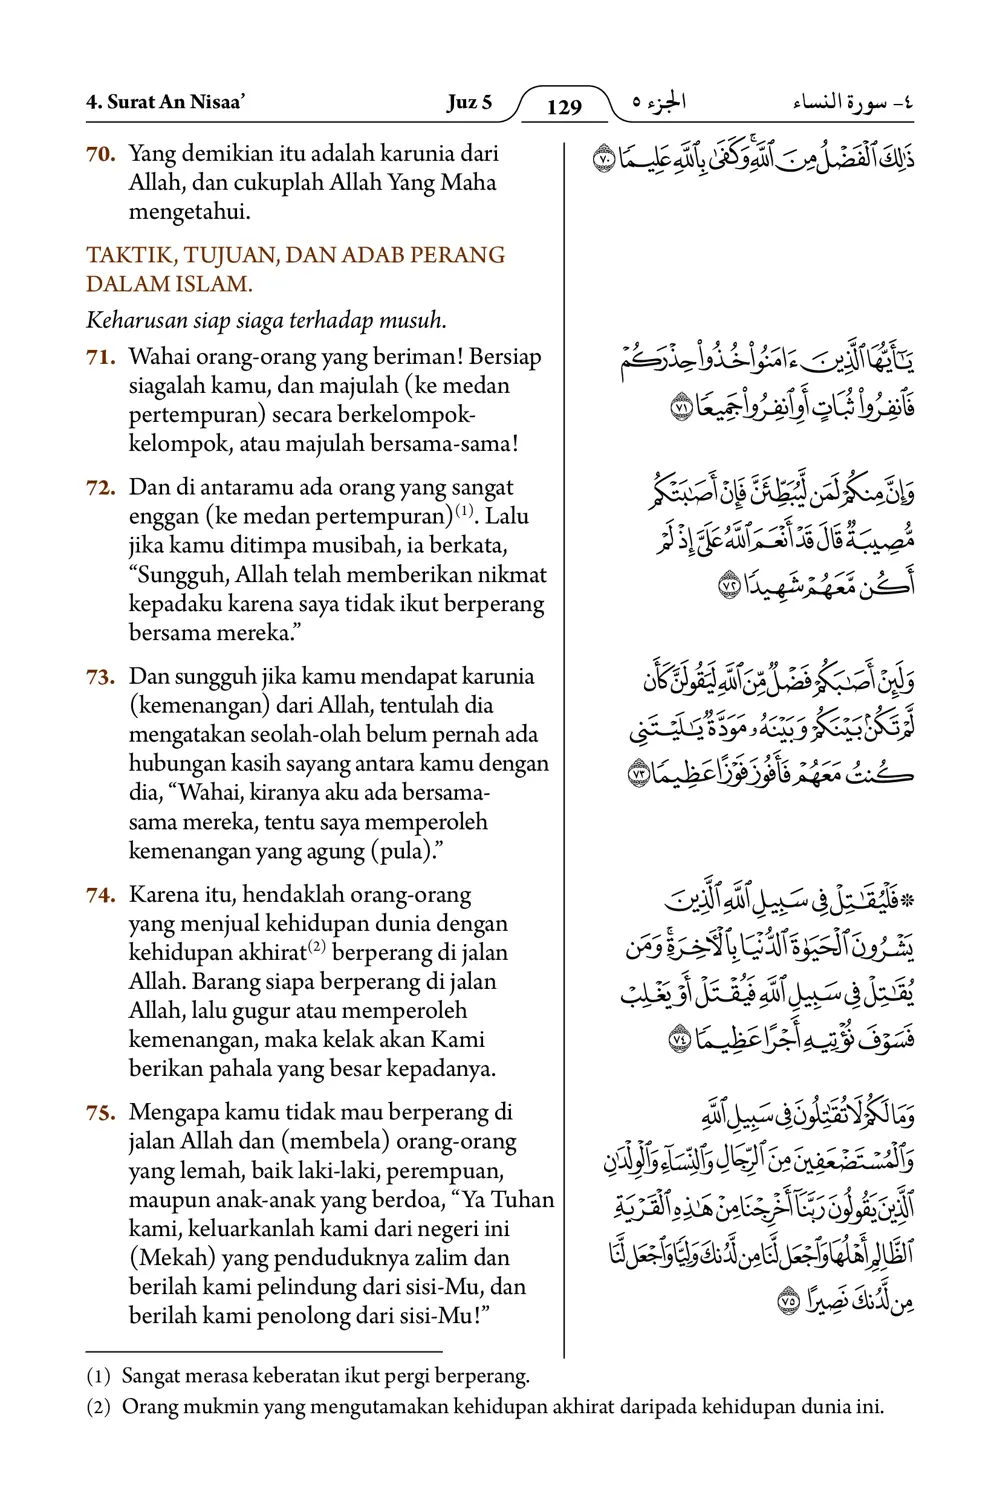 4. Surat An Nisaa’ Juz 5 129 الجزء ٥ ٤- سورة النساء
70. Yang demikian itu adalah karunia dari
Allah, dan cukuplah Allah Yang Maha
mengetahui.
ذَٰلِكَ ٱلْفَضْلُ مِنَ ٱللَّهِۚ وَكَفَىٰ بِٱللَّهِ عَلِيمًا ٧٠
TAKTIK, TUJUAN, DAN ADAB PERANG
DALAM ISLAM.
Keharusan siap siaga terhadap musuh.
71. Wahai orang-orang yang beriman! Bersiap
siagalah kamu, dan majulah (ke medan
pertempuran) secara berkelompok-
kelompok, atau majulah bersama-sama!
يَـٰٓأَيُّهَا ٱلَّذِينَ ءَامَنُوا۟ خُذُوا۟ حِذْرَكُمْ
فَٱنفِرُوا۟ ثُبَاتٍ أَوِ ٱنفِرُوا۟ جَمِيعًا ٧١
72. Dan di antaramu ada orang yang sangat
enggan (ke medan pertempuran)(1). Lalu
jika kamu ditimpa musibah, ia berkata,
“Sungguh, Allah telah memberikan nikmat
kepadaku karena saya tidak ikut berperang
bersama mereka.”
وَإِنَّ مِنكُمْ لَمَن لَّيُبَطِّئَنَّ فَإِنْ أَصَـٰبَتْكُم
مُّصِيبَةٌ قَالَ قَدْ أَنْعَمَ ٱللَّهُ عَلَىَّ إِذْ لَمْ
أَكُن مَّعَهُمْ شَهِيدًا ٧٢
73. Dan sungguh jika kamu mendapat karunia
(kemenangan) dari Allah, tentulah dia
mengatakan seolah-olah belum pernah ada
hubungan kasih sayang antara kamu dengan
dia, “Wahai, kiranya aku ada bersama-
sama mereka, tentu saya memperoleh
kemenangan yang agung (pula).”
وَلَئِنْ أَصَـٰبَكُمْ فَضْلٌ مِّنَ ٱللَّهِ لَيَقُولَنَّ كَأَن
لَّمْ تَكُنۢ بَيْنَكُمْ وَبَيْنَهُۥ مَوَدَّةٌ يَـٰلَيْتَنِى
كُنتُ مَعَهُمْ فَأَفُوزَ فَوْزًا عَظِيمًا ٧٣
74. Karena itu, hendaklah orang-orang
yang menjual kehidupan dunia dengan
kehidupan akhirat(2) berperang di jalan
Allah. Barang siapa berperang di jalan
Allah, lalu gugur atau memperoleh
kemenangan, maka kelak akan Kami
berikan pahala yang besar kepadanya.
* فَلْيُقَـٰتِلْ فِى سَبِيلِ ٱللَّهِ ٱلَّذِينَ
يَشْرُونَ ٱلْحَيَوٰةَ ٱلدُّنْيَا بِٱلْـَٔاخِرَةِۚ وَمَن
يُقَـٰتِلْ فِى سَبِيلِ ٱللَّهِ فَيُقْتَلْ أَوْ يَغْلِبْ
فَسَوْفَ نُؤْتِيهِ أَجْرًا عَظِيمًا ٧٤
75. Mengapa kamu tidak mau berperang di
jalan Allah dan (membela) orang-orang
yang lemah, baik laki-laki, perempuan,
maupun anak-anak yang berdoa, “Ya Tuhan
kami, keluarkanlah kami dari negeri ini
(Mekah) yang penduduknya zalim dan
berilah kami pelindung dari sisi-Mu, dan
berilah kami penolong dari sisi-Mu!”
وَمَا لَكُمْ لَا تُقَـٰتِلُونَ فِى سَبِيلِ ٱللَّهِ
وَٱلْمُسْتَضْعَفِينَ مِنَ ٱلرِّجَالِ وَٱلنِّسَآءِ وَٱلْوِلْدَٰنِ
ٱلَّذِينَ يَقُولُونَ رَبَّنَآ أَخْرِجْنَا مِنْ هَـٰذِهِ ٱلْقَرْيَةِ
ٱلظَّالِمِ أَهْلُهَا وَٱجْعَل لَّنَا مِن لَّدُنكَ وَلِيًّا وَٱجْعَل لَّنَا
مِن لَّدُنكَ نَصِيرًا ٧٥
(1) Sangat merasa keberatan ikut pergi berperang.
(2) Orang mukmin yang mengutamakan kehidupan akhirat daripada kehidupan dunia ini.